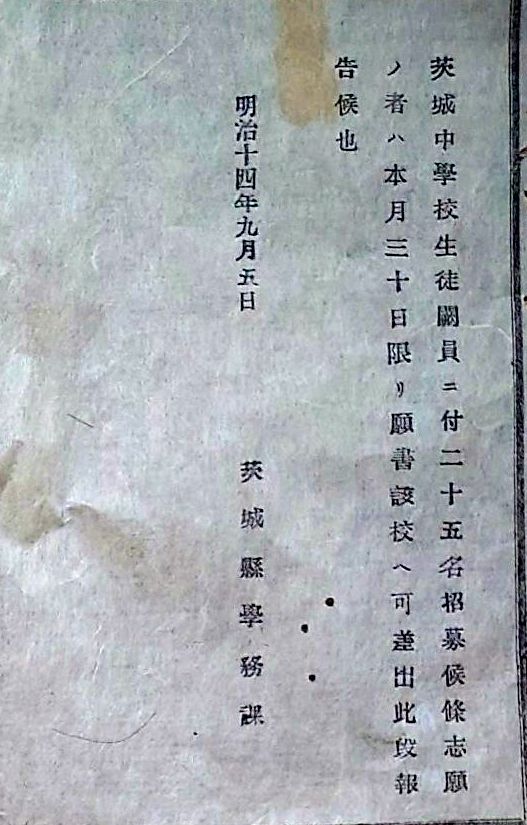 茨城中學校生徒闕員ニ付二十五名招募候條志願
ノ者ハ本月三十日限リ願書該校ヘ可差出此段報
告候也
明治十四年九月五日
茨城縣學務課